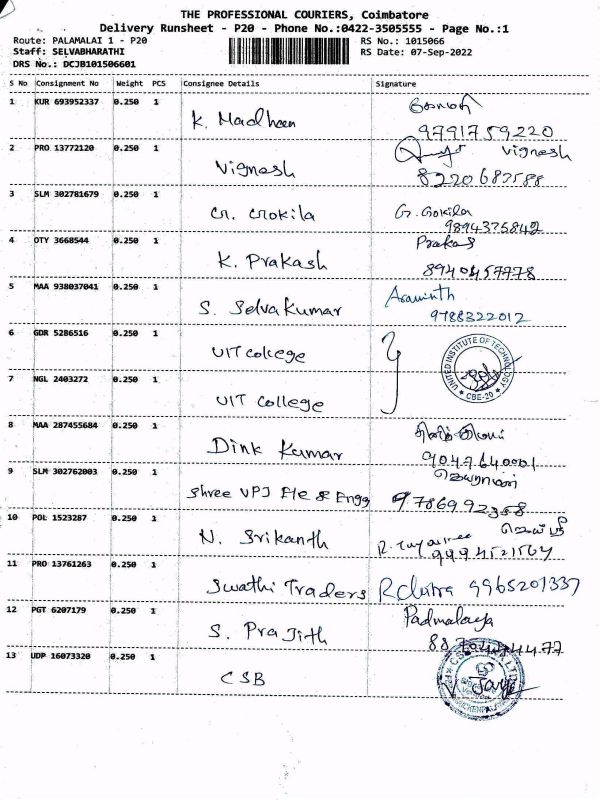 THE PROFESSIONAL COURIERS, Coimbatore
Delivery Runsheet - P20 - Phone No.:0422-3505555 - Page No.:1
Route: PALAMALAI 1 - P20
Staff: SELVABHARATHI
DRS No.: DCJB101506601
RS No.: 1015066
RS Date: 07-Sep-2022
S No Consignment No Weight PCS Consignee Details Signature
1 KUR 693952337 0.250 1 K. Madhan
9791759220
2 PRO 13772120 0.250 1 Vignesh Vignesh
8220687588
3 SLM 302781679 0.250 1 G. Gokila G. Gokila
9894375842
4 OTY 3668544 0.250 1 K. Prakash Prakash
8940457778
5 MAA 938037041 0.250 1 S. Selvakumar Aravinth
9788322012
6 GDR 5286516 0.250 1 UIT college
UNITED INSTITUTE OF TECHNOLOGY
CBE-20
7 NGL 2403272 0.250 1 UIT college
8 MAA 287455684 0.250 1 Dink Kumar
9047640001
9 SLM 302762003 0.250 1 Shree VPJ Ele & Engg
10 POL 1523287 0.250 1 N. Srikanth
11 PRO 13761263 0.250 1 Swathi Traders R Chitra 9965201337
12 PGT 6207179 0.250 1 S. Prajith Padmalaya
13 UDP 16073320 0.250 1 CSB